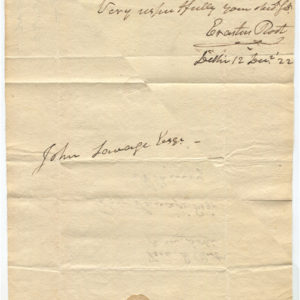 Very respectfully your obdt St
Erastus Root
Delhi 12 Decr 22
John Savage Esqr